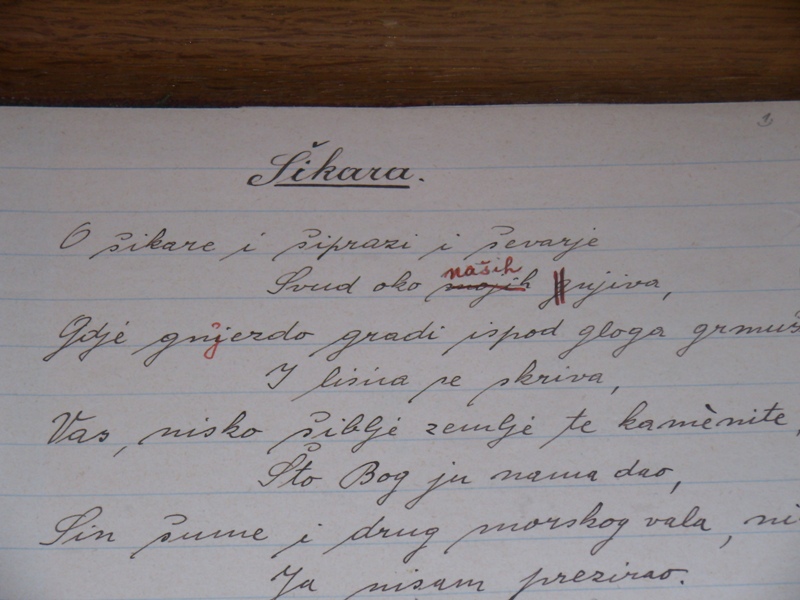 1
Šikara.
O šikare i šiprazi i ševarje
naših
Svud oko mojih njiva,
Gdje gnjezdo gradi ispod gloga grmuš
I lisica se skriva,
Vas, nisko šiblje zemlje te kamènite,
Što Bog ju nama dao,
Sin šume i drug morskog vala, ni
Ja nisam prezirao.